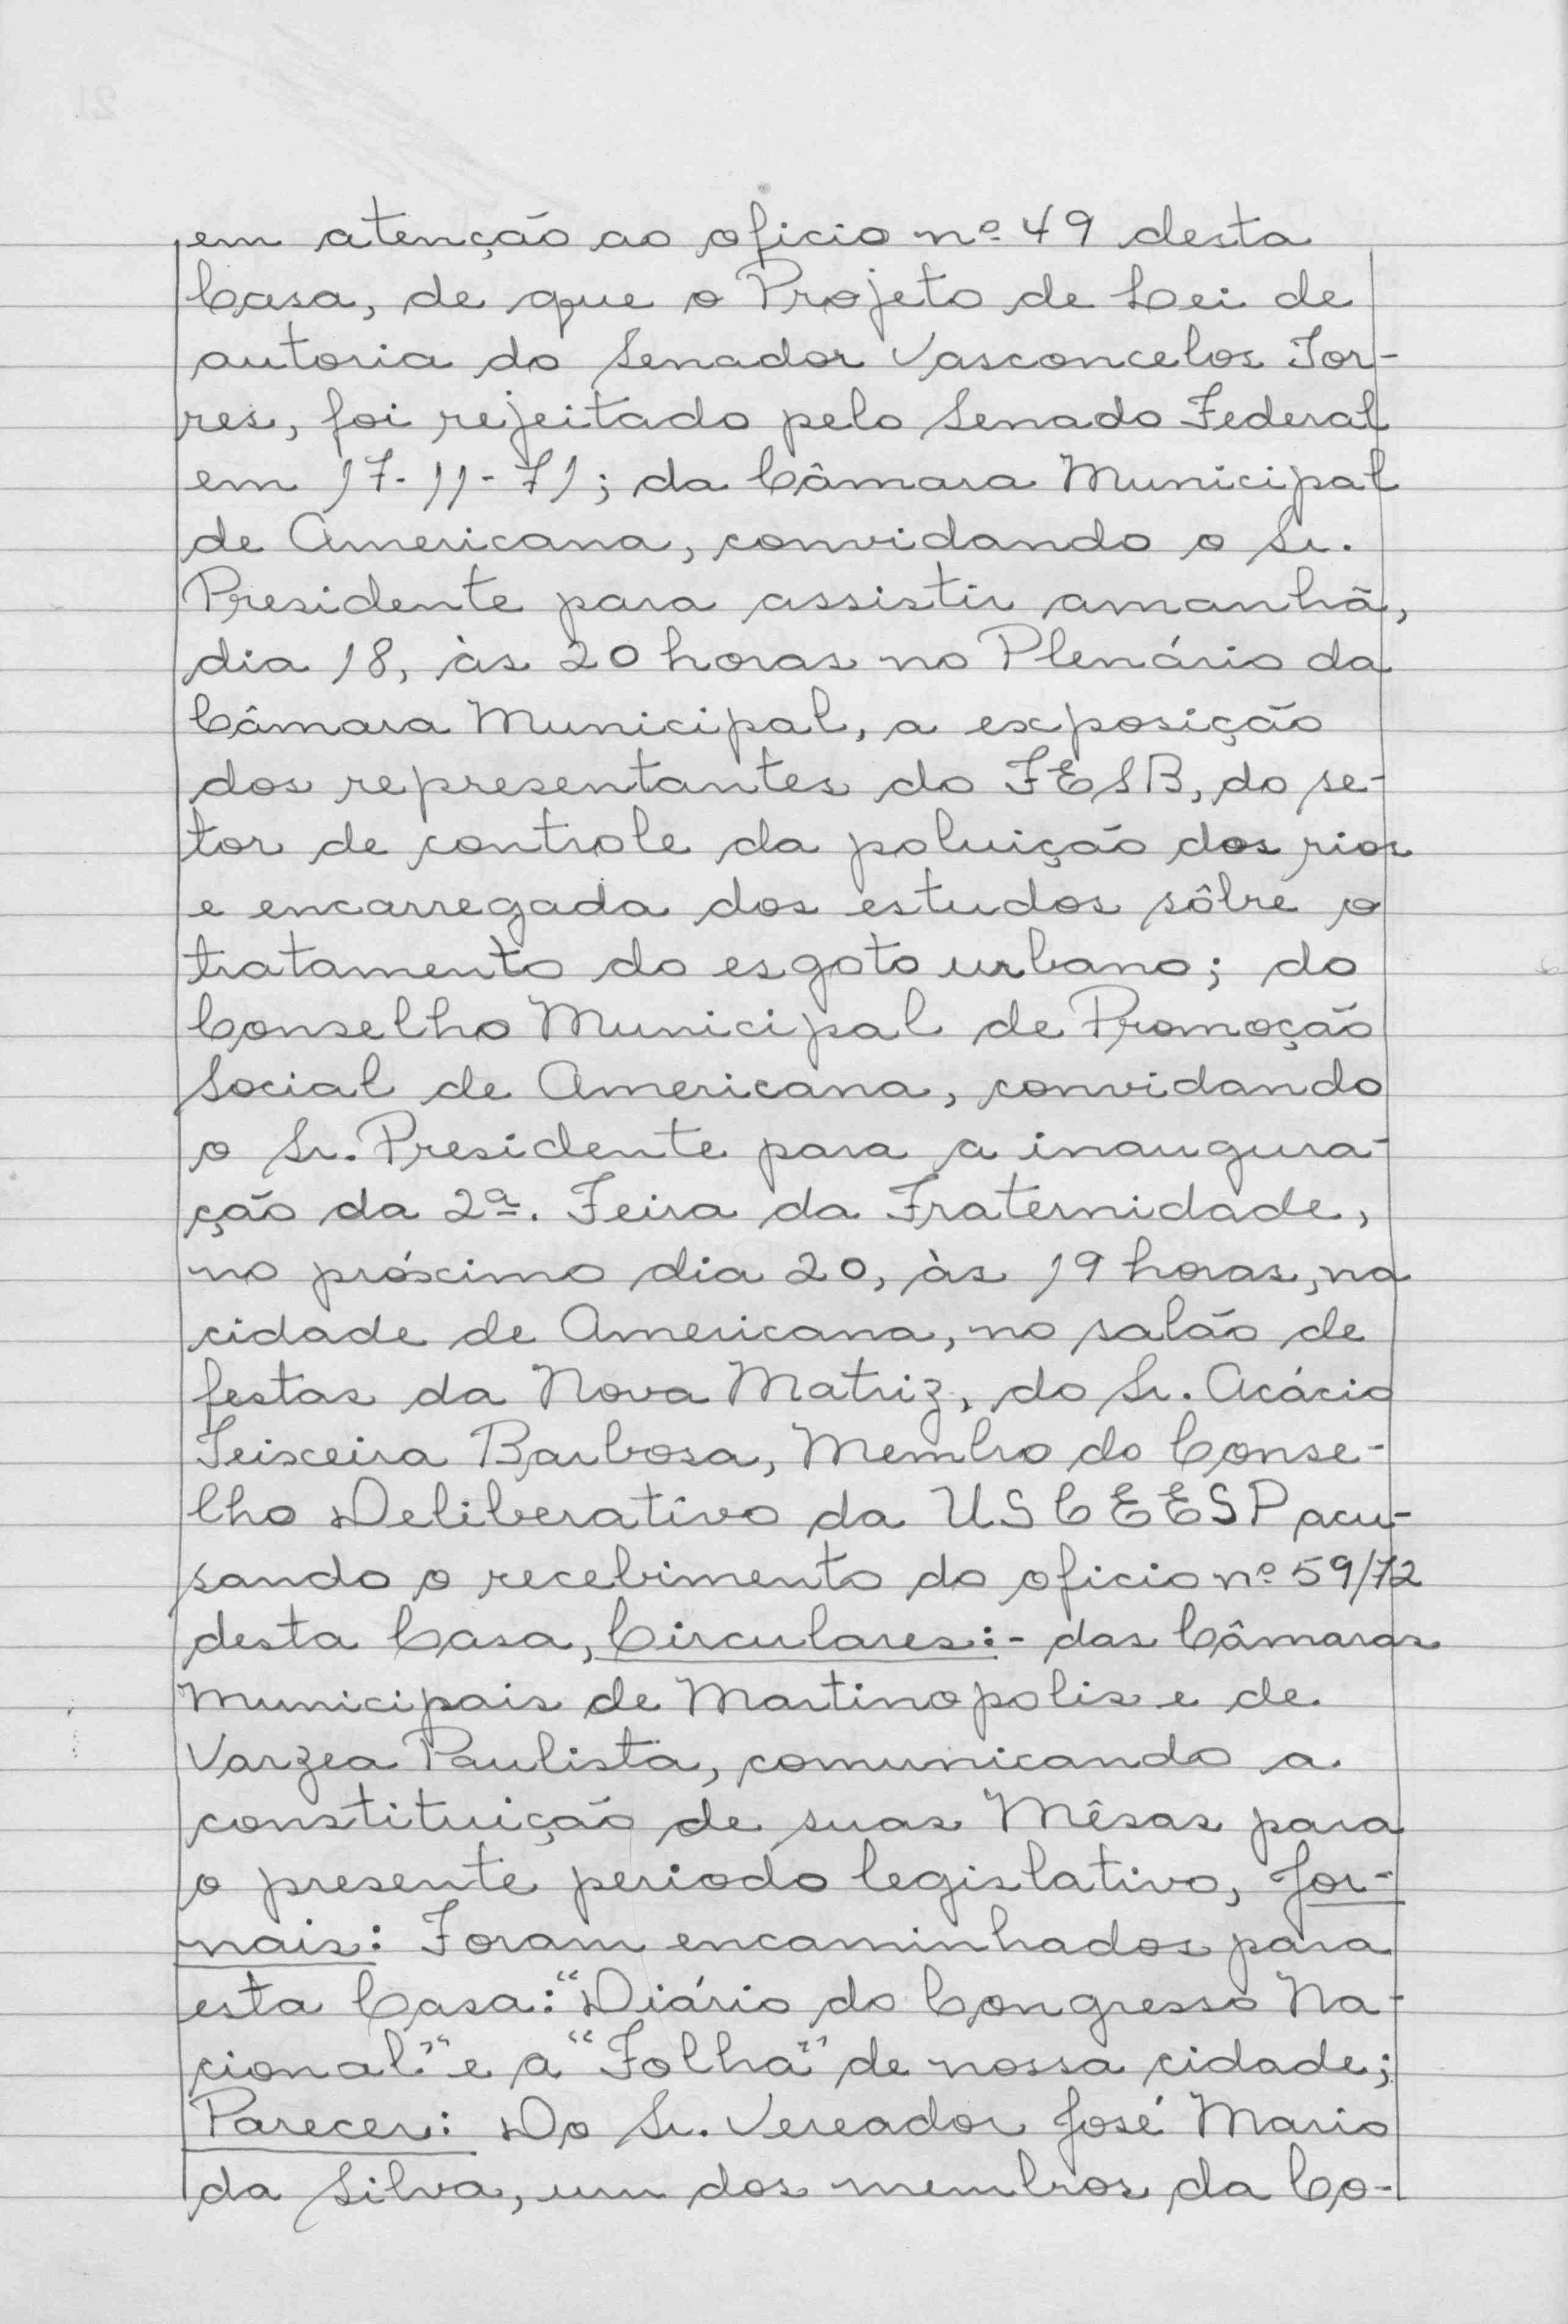 em atenção ao oficio nº 49 desta
Casa, de que o Projeto de Lei de
autoria do Senador Vasconcelos Tor-
res, foi rejeitado pelo Senado Federal
em 17-11-71; da Câmara Municipal
de Americana, convidando o Sr.
Presidente para assistir amanhã,
dia 18, às 20 horas no Plenário da
Câmara Municipal, a exposição
dos representantes do FESB, do se-
tor de controle da poluição dos rios
e encarregada dos estudos sôbre o
tratamento do esgoto urbano; do
Conselho Municipal de Promoção
Social de Americana, convidando
o Sr. Presidente para a inaugura-
ção da 2ª. Feira da Fraternidade,
no próximo dia 20, às 19 horas, na
cidade de Americana, no salão de
festas da Nova Matriz, do Sr. Acácio
Teixeira Barbosa, Membro do Conse-
lho Deliberativo da USCEESP acu-
sando o recebimento do oficio nº 59/72
desta Casa, Circulares:- das Câmaras
Municipais de Martinopolis e de
Varzea Paulista, comunicando a
constituição de suas Mêsas para
o presente periodo legislativo, Jor-
nais: Foram encaminhados para
esta Casa: "Diário do Congresso Na-
cional." e a "Folha" de nossa cidade;
Parecer: Do Sr. Vereador José Mario
da Silva, um dos membros da Co-